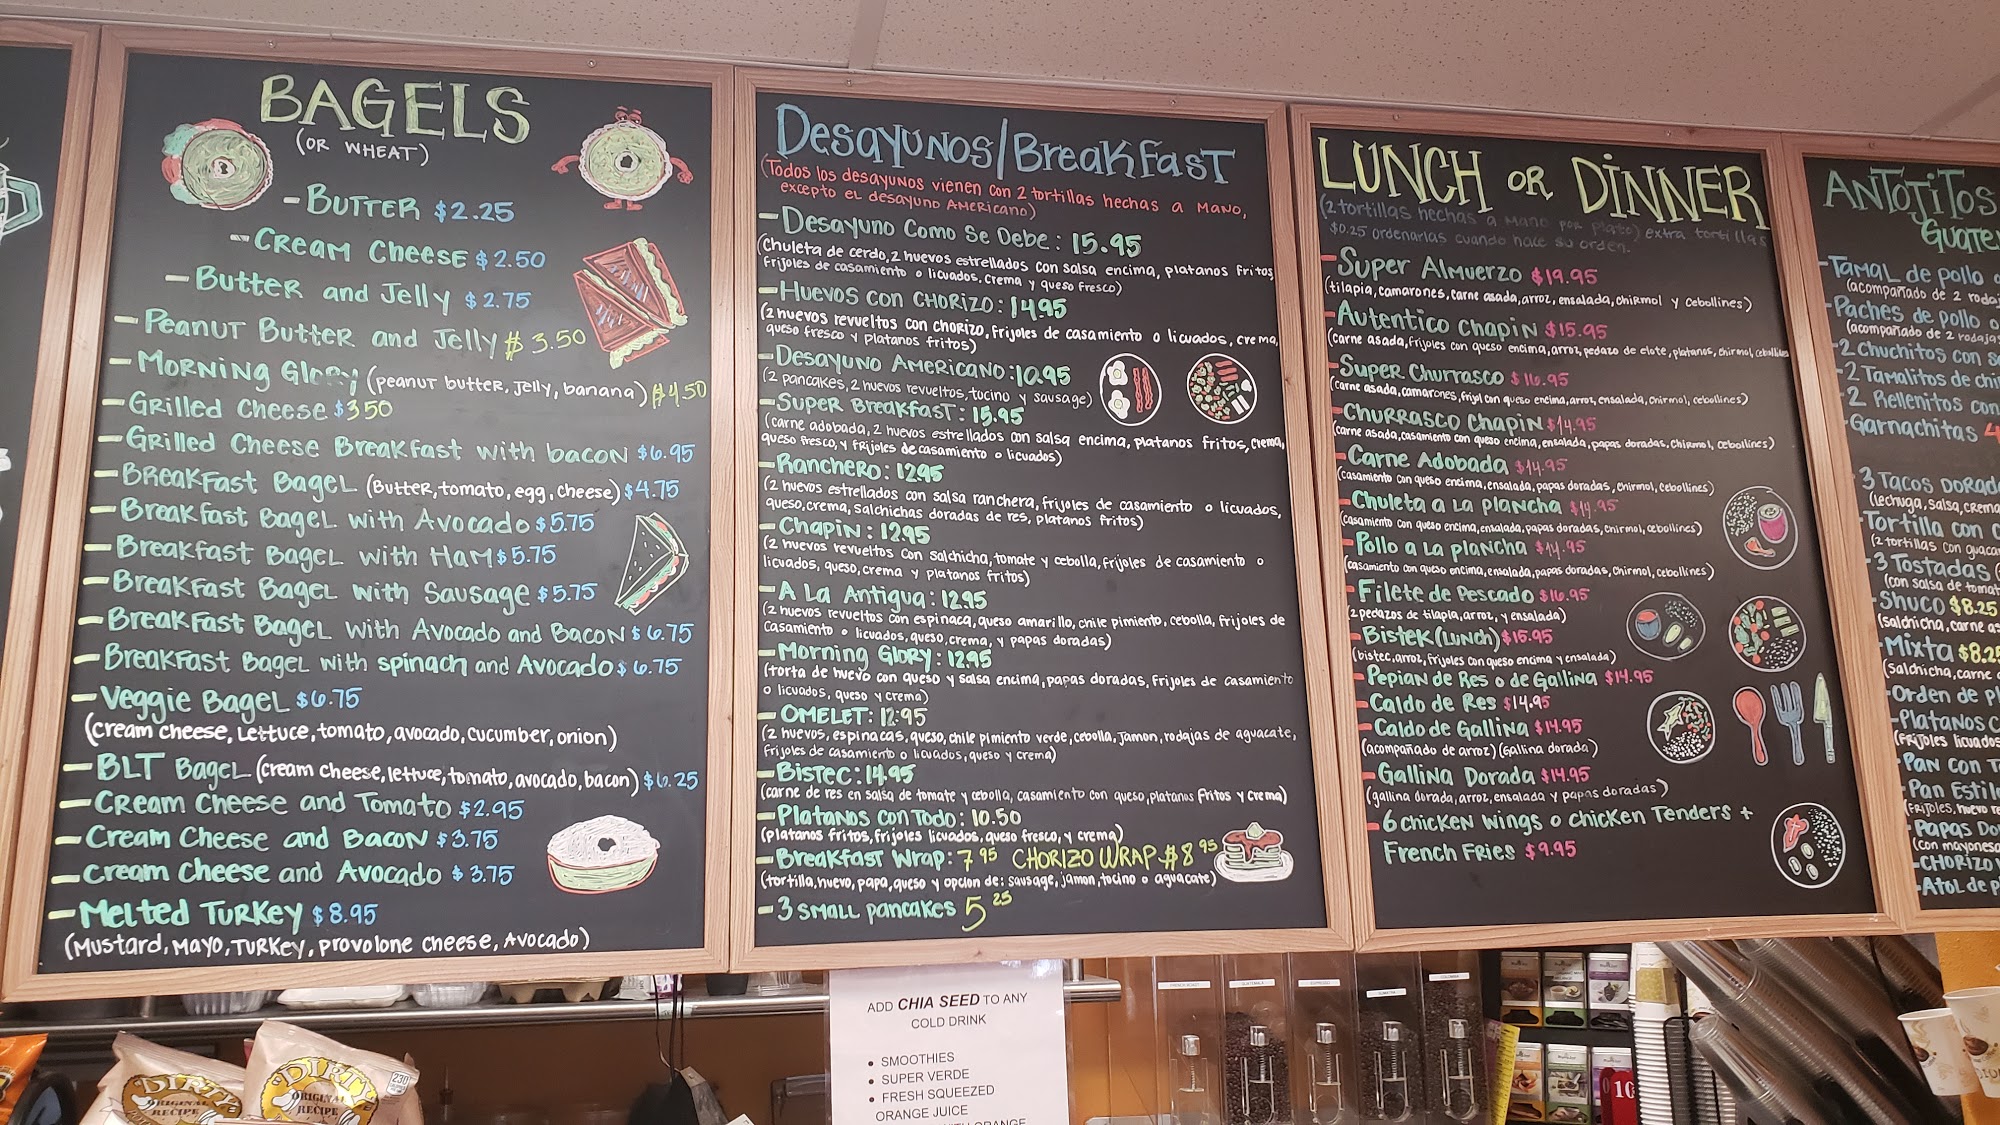 BAGELS
(OR WHEAT)
- BUTTER $2.25
- CREAM CHEESE $2.50
- BUTTER and JELLY $2.75
- PEANUT BUTTER and JELLY $3.50
- MORNING GLORY (PEANUT BUTTER, JELLY, BANANA) $4.50
- GRILLED CHEESE $3.50
- GRILLED CHEESE BREAKFAST WITH BACON $6.95
- BREAKFAST BAGEL (BUTTER, TOMATO, EGG, CHEESE) $4.75
- BREAKFAST BAGEL WITH AVOCADO $5.75
- BREAKFAST BAGEL WITH HAM $5.75
- BREAKFAST BAGEL WITH SAUSAGE $5.75
- BREAKFAST BAGEL WITH AVOCADO AND BACON $6.75
- BREAKFAST BAGEL WITH SPINACH AND AVOCADO $6.75
- VEGGIE BAGEL $6.75
(CREAM CHEESE, LETTUCE, TOMATO, AVOCADO, CUCUMBER, ONION)
- BLT BAGEL (CREAM CHEESE, LETTUCE, TOMATO, AVOCADO, BACON) $6.25
- CREAM CHEESE AND TOMATO $2.95
- CREAM CHEESE AND BACON $3.75
- CREAM CHEESE AND AVOCADO $3.75
- MELTED TURKEY $8.95
(MUSTARD, MAYO, TURKEY, PROVOLONE CHEESE, AVOCADO)
DESAYUNOS/BREAKFAST
(TODOS LOS DESAYUNOS VIENEN CON 2 TORTILLAS HECHAS A MANO,
EXCEPTO EL DESAYUNO AMERICANO)
- DESAYUNO COMO SE DEBE: 15.95
(CHULETA DE CERDO, 2 HUEVOS ESTRELLADOS CON SALSA ENCIMA, PLATANOS FRITOS,
FRIJOLES DE CASAMIENTO O LICUADOS, CREMA Y QUESO FRESCO)
- HUEVOS CON CHORIZO: 14.95
(2 HUEVOS REVUELTOS CON CHORIZO, FRIJOLES DE CASAMIENTO O LICUADOS, CREMA,
QUESO FRESCO Y PLATANOS FRITOS)
- DESAYUNO AMERICANO: 10.95
(2 PANCAKES, 2 HUEVOS REVUELTOS, TOCINO Y SAUSAGE)
- SUPER BREAKFAST: 15.95
(CARNE ADOBADA, 2 HUEVOS ESTRELLADOS CON SALSA ENCIMA, PLATANOS FRITOS, CREMA,
QUESO FRESCO, Y FRIJOLES DE CASAMIENTO O LICUADOS)
- RANCHERO: 12.95
(2 HUEVOS ESTRELLADOS CON SALSA RANCHERA, FRIJOLES DE CASAMIENTO O LICUADOS,
QUESO, CREMA, SALCHICHAS DORADAS DE RES, PLATANOS FRITOS)
- CHAPIN: 12.95
(2 HUEVOS REVUELTOS CON SALCHICHA, TOMATE Y CEBOLLA, FRIJOLES DE CASAMIENTO O
LICUADOS, QUESO, CREMA Y PLATANOS FRITOS)
- A LA ANTIGUA: 12.95
(2 HUEVOS REVUELTOS CON ESPINACA, QUESO AMARILLO, CHILE PIMIENTO, CEBOLLA, FRIJOLES DE
CASAMIENTO O LICUADOS, QUESO, CREMA, Y PAPAS DORADAS)
- MORNING GLORY: 12.95
(TORTA DE HUEVO CON QUESO Y SALSA ENCIMA, PAPAS DORADAS, FRIJOLES DE CASAMIENTO
O LICUADOS, QUESO Y CREMA)
- OMELET: 12.95
(2 HUEVOS, ESPINACAS, QUESO, CHILE PIMIENTO VERDE, CEBOLLA, JAMON, RODAJAS DE AGUACATE,
FRIJOLES DE CASAMIENTO O LICUADOS, QUESO Y CREMA)
- BISTEC: 14.95
(CARNE DE RES EN SALSA DE TOMATE Y CEBOLLA, CASAMIENTO CON QUESO, PLATANOS FRITOS Y CREMA)
- PLATANOS CON TODO: 10.50
(PLATANOS FRITOS, FRIJOLES LICUADOS, QUESO FRESCO, Y CREMA)
- BREAKFAST WRAP: 7 95 CHORIZO WRAP $8 95
(TORTILLA, HUEVO, PAPA, QUESO Y OPCION DE: SAUSAGE, JAMON, TOCINO O AGUACATE)
- 3 SMALL PANCAKES 5 25
LUNCH OR DINNER
(2 TORTILLAS HECHAS A MANO POR PLATO) EXTRA TORTILLAS
$0.25 ORDENARLAS CUANDO HACE SU ORDEN.
- SUPER ALMUERZO $19.95
(TILAPIA, CAMARONES, CARNE ASADA, ARROZ, ENSALADA, CHIRMOL Y CEBOLLINES)
- AUTENTICO CHAPIN $15.95
(CARNE ASADA, FRIJOLES CON QUESO ENCIMA, ARROZ, PEDAZO DE ELOTE, PLATANOS, CHIRMOL, CEBOLLINES
- SUPER CHURRASCO $16.95
(CARNE ASADA, CAMARONES, FRIJOL CON QUESO ENCIMA, ARROZ, ENSALADA, CHIRMOL, CEBOLLINES)
- CHURRASCO CHAPIN $14.95
(CARNE ASADA, CASAMIENTO CON QUESO ENCIMA, ENSALADA, PAPAS DORADAS, CHIRMOL, CEBOLLINES)
- CARNE ADOBADA $14.95
(CASAMIENTO CON QUESO ENCIMA, ENSALADA, PAPAS DORADAS, CHIRMOL, CEBOLLINES)
- CHULETA A LA PLANCHA $14.95
(CASAMIENTO CON QUESO ENCIMA, ENSALADA, PAPAS DORADAS, CHIRMOL, CEBOLLINES)
- POLLO A LA PLANCHA $14.95
(CASAMIENTO CON QUESO ENCIMA, ENSALADA, PAPAS DORADAS, CHIRMOL, CEBOLLINES)
- FILETE DE PESCADO $16.95
(2 PEDAZOS DE TILAPIA, ARROZ, Y ENSALADA)
- BISTEK (LUNCH) $15.95
(BISTEC, ARROZ, FRIJOLES CON QUESO ENCIMA Y ENSALADA)
- PEPIAN DE RES O DE GALLINA $14.95
- CALDO DE RES $14.95
- CALDO DE GALLINA $14.95
(ACOMPAÑADO DE ARROZ) (GALLINA DORADA)
- GALLINA DORADA $14.95
(GALLINA DORADA, ARROZ, ENSALADA Y PAPAS DORADAS)
- 6 CHICKEN WINGS O CHICKEN TENDERS +
FRENCH FRIES $9.95
ANTOJITOS
- TAMAL DE POLLO
(ACOMPAÑADO DE 2
- PACHES DE POLLO O
(ACOMPAÑADO DE 2
- 2 CHUCHITOS CON
- 2 TAMALITOS DE
- 2 RELLENITOS CON
- GARNACHITAS 4
- 3 TACOS
(LECHUGA, SALSA, CREMA
- TORTILLA CON
(2 TORTILLAS CON
- 3 TOSTADAS
(CON SALSA DE
- SHUCO $8.25
(SALCHICHA, CARNE
- MIXTA $8.25
(SALCHICHA, CARNE
- ORDEN DE
- PLATANOS
(FRIJOLES LICUADOS
- PAN CON
- PAN
(FRIJOLES, HUEVO
- PAPAS
(CON
- CHORIZO
- ATOL DE
ADD CHIA SEED TO ANY
COLD DRINK
• SMOOTHIES
• SUPER VERDE
• FRESH SQUEEZED
ORANGE JUICE
ORANGE
"DIRTY"
ORIGINAL
RECIPE
"DIRTY"
ORIGINAL
RECIPE
230
FRENCH ROAST
GUATEMALA
ESPRESSO
SUMATRA
COLOMBIA
10